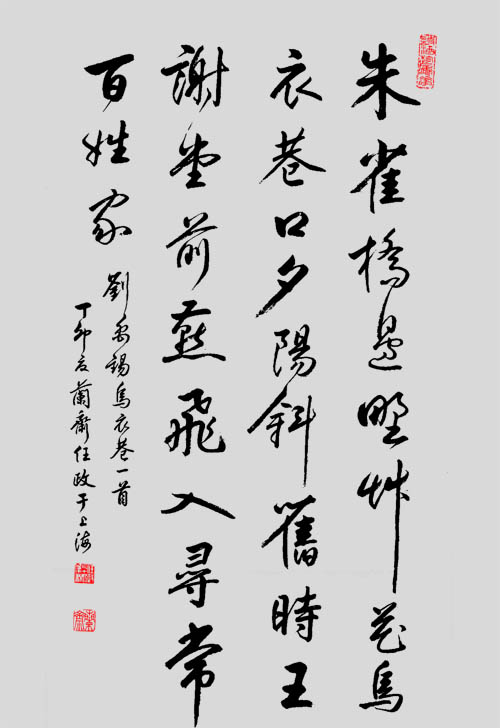 朱雀橋邊野艸花烏
衣巷口夕陽斜舊時王
謝堂前燕飛入尋常
百姓家
劉禹錫烏衣巷一首
丁卯夏蘭齋任政于上海